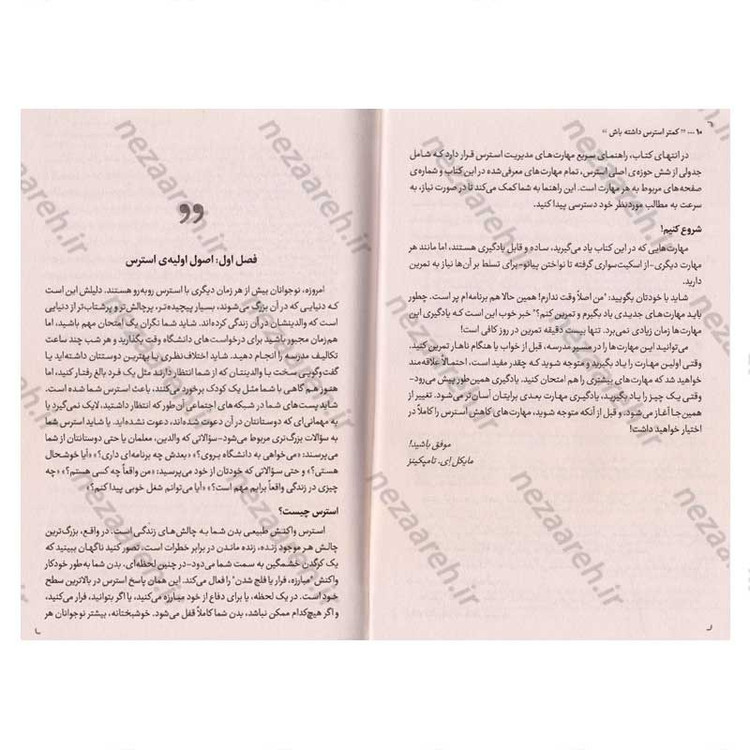 ۱۰ — " کمتر استرس داشته باش "
در انتهای کتاب، راهنمای سریع مهارت‌های مدیریت استرس قرار دارد که شامل
جدولی از شش حوزه‌ی اصلی استرس، تمام مهارت‌های معرفی‌شده در این کتاب و شماره‌ی
صفحه‌های مربوط به هر مهارت است. این راهنما به شما کمک می‌کند تا در صورت نیاز، به
سرعت به مطالب موردنظر خود دسترسی پیدا کنید.
شروع کنیم!
مهارت‌هایی که در این کتاب یاد می‌گیرید، ساده و قابل یادگیری هستند، اما مانند هر
مهارت دیگری-از اسکیت‌سواری گرفته تا نواختن پیانو-برای تسلط بر آن‌ها نیاز به تمرین
دارید.
شاید با خودتان بگویید: "من اصلاً وقت ندارم! همین حالا هم برنامه‌ام پر است. چطور
باید مهارت‌های جدیدی یاد بگیرم و تمرین کنم؟" خبر خوب این است که یادگیری این
مهارت‌ها زمان زیادی نمی‌برد. تنها بیست دقیقه تمرین در روز کافی است!
می‌توانید این مهارت‌ها را در مسیر مدرسه، قبل از خواب یا هنگام ناهار تمرین کنید.
وقتی اولین مهارت را یاد بگیرید و متوجه شوید که چقدر مفید است، احتمالاً علاقه‌مند
خواهید شد که مهارت‌های بیشتری را هم امتحان کنید. یادگیری همین‌طور پیش می‌رود-
وقتی یک چیز را یاد بگیرید، یادگیری مهارت بعدی برایتان آسان‌تر می‌شود. تغییر از
همین جا آغاز می‌شود، و قبل از آنکه متوجه شوید، مهارت‌های کاهش استرس را کاملاً در
اختیار خواهید داشت!
موفق باشید!
مایکل اِی. تامپکینز
فصل اول: اصول اولیه‌ی استرس
امروزه، نوجوانان بیش از هر زمان دیگری با استرس روبه‌رو هستند. دلیلش این است
که دنیایی که در آن بزرگ می‌شوند، بسیار پیچیده‌تر، پرچالش‌تر و پرشتاب‌تر از دنیایی
است که والدینشان در آن زندگی کرده‌اند. شاید شما نگران یک امتحان مهم باشید، اما
هم‌زمان مجبور باشید برای درخواست‌های دانشگاه وقت بگذارید و هر شب چند ساعت
تکالیف مدرسه را انجام دهید. شاید اختلاف‌نظری با بهترین دوستتان داشته‌اید یا
گفت‌وگویی سخت با والدینتان که از شما انتظار دارند مثل یک فرد بالغ رفتار کنید، اما
هنوز هم گاهی با شما مثل یک کودک برخورد می‌کنند، باعث استرس شما شده است.
شاید پست‌های شما در شبکه‌های اجتماعی آن‌طور که انتظار داشتید، لایک نمی‌گیرد یا
به مهمانی‌ای که دوستانتان در آن دعوت شده‌اند، دعوت نشده‌اید. یا شاید استرس شما
به سؤالات بزرگ‌تری مربوط می‌شود-سؤالاتی که والدین، معلمان یا حتی دوستانتان از شما
می‌پرسند: «می‌خواهی به دانشگاه بروی؟» «بعدش چه برنامه‌ای داری؟» «آیا خوشحال
هستی؟» و حتی سؤالاتی که خودتان از خود می‌پرسید: «من واقعاً چه کسی هستم؟» «چه
چیزی در زندگی واقعاً برایم مهم است؟» «آیا می‌توانم شغل خوبی پیدا کنم؟»
استرس چیست؟
استرس واکنش طبیعی بدن شما به چالش‌های زندگی است. در واقع، بزرگ‌ترین
چالش هر موجود زنده، زنده ماندن در برابر خطرات است. تصور کنید ناگهان ببینید که
یک کرگدن خشمگین به سمت شما می‌دود-در چنین لحظه‌ای، بدن شما به‌طور خودکار
واکنش "مبارزه، فرار یا فلج شدن" را فعال می‌کند. این همان پاسخ استرس در بالاترین سطح
خود است. در یک لحظه، یا برای دفاع از خود مبارزه می‌کنید، یا اگر بتوانید، فرار می‌کنید،
و اگر هیچ‌کدام ممکن نباشد، بدن شما کاملاً قفل می‌شود. خوشبختانه، بیشتر نوجوانان هر
nezaareh.ir
nezaareh.ir
nezaareh.ir
nezaareh.ir
nezaareh.ir
nezaareh.ir
nezaareh.ir
nezaareh.ir